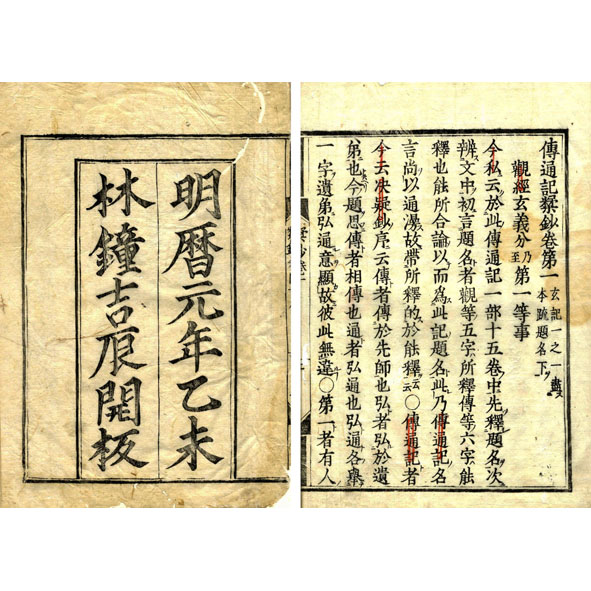 傳通記糅鈔卷第一 玄記一之一
本疏題名下
觀經玄義分乃至第一等事
今私云於此傳通記一部十五卷中先釋題名次
辨文中初言題名者觀等五字所釋傳等六字能
釋也能所合論以而爲此記題名此乃傳通記名
言尚以通漫故帶所釋的於能釋云云〇傳通記者
今云決疑鈔序云傳者傳於先師也弘者弘於遺
弟也今題思傳者相傳也通者弘通也弘通各舉
一字遺弟弘通意顯故彼此無違〇第一者有人
明曆元年乙未
林鐘吉辰開板